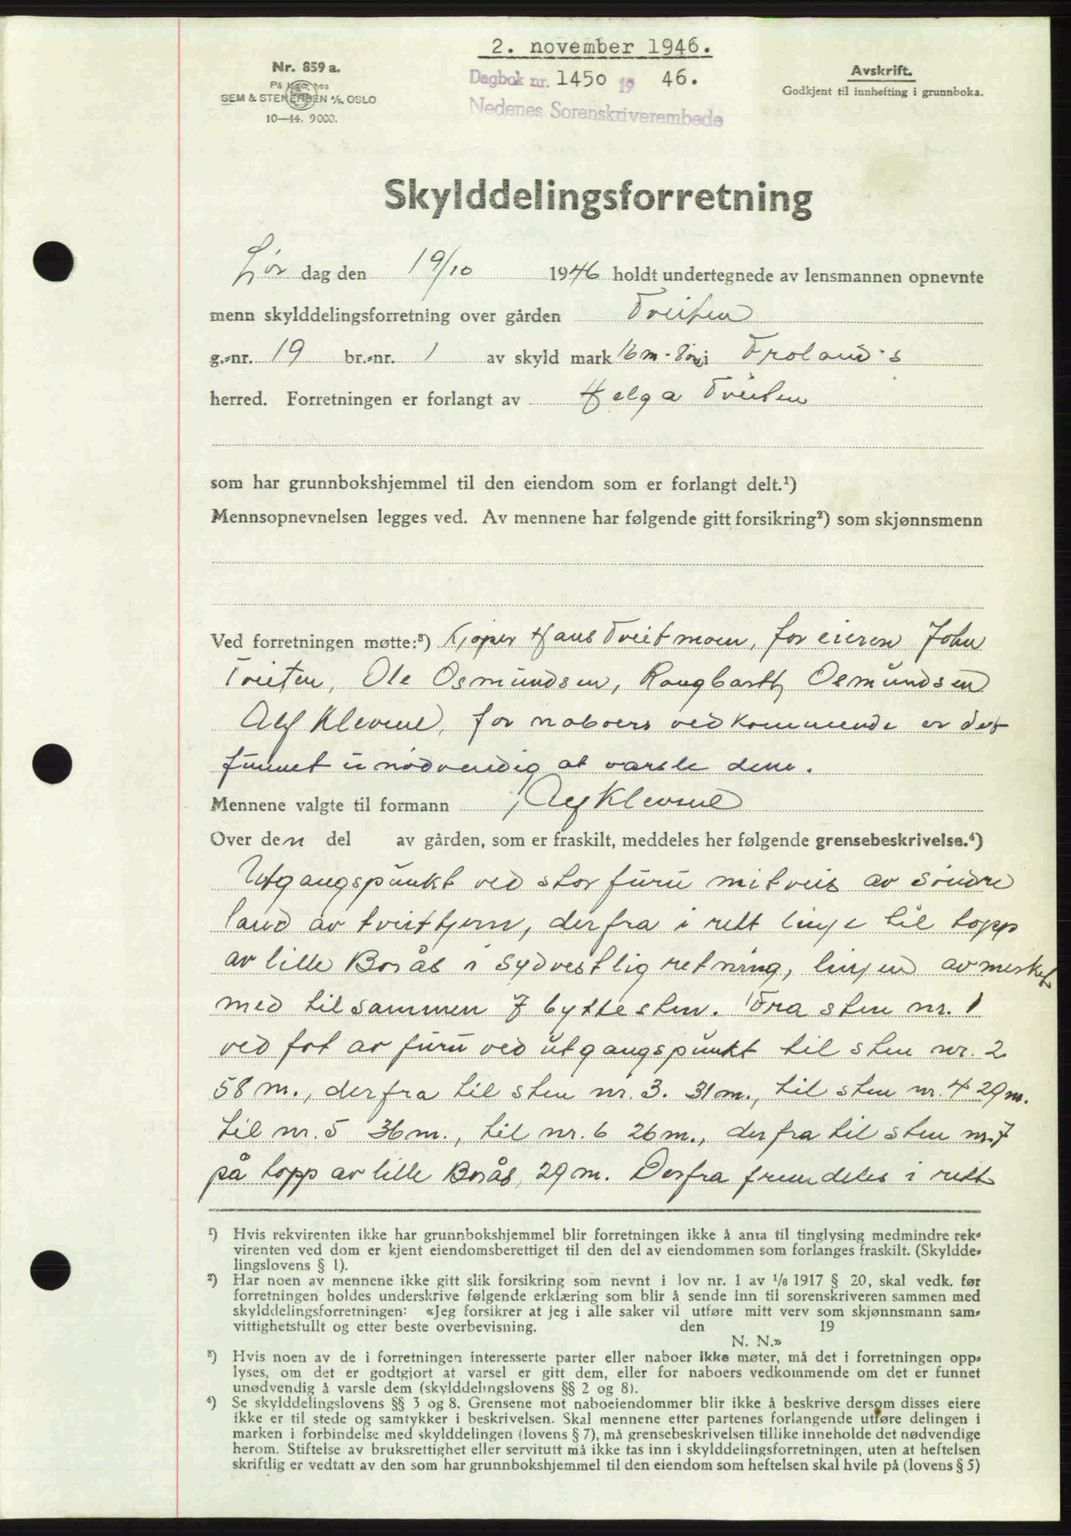 2. november 1946.
Nr. 859 a.
Dagbok nr. 1450 19 46.
Avskrift.
På lager hos
SEM & STENERSEN A/S, OSLO
Godkjent til innhefting i grunnboka.
10—44. 9000.
Nedenes Sorenskriverembede
Skylddelingsforretning
Lør dag den 19/10 1946 holdt undertegnede av lensmannen opnevnte
menn skylddelingsforretning over gården Tveiten
g.-nr. 19 br.-nr. 1 av skyld mark 16 m - 8 øre i Froland's
herred. Forretningen er forlangt av Helga Tveiten
som har grunnbokshjemmel til den eiendom som er forlangt delt.¹)
Mennsopnevnelsen legges ved. Av mennene har følgende gitt forsikring²) som skjønnsmenn
Ved forretningen møtte:³) Kjøper Hans Tveitmoen, for eieren John
Tveiten, Ole Osmundsen, Osmundsen
Alf Klevene, for naboers vedkommende er det
funnet unødvendig at varsle dem.
Mennene valgte til formann Alf Klevene
Over den del av gården, som er fraskilt, meddeles her følgende grensebeskrivelse.⁴)
Utgangspunkt ved stor furu mitveis av søndre
land av tveittjern, derfra i rett linje til topp
av lille Borås i sydvestlig retning, linjen avmerket
med tilsammen 7 byttesten. Fra sten nr. 1
ved fot av furu ved utgangspunkt til sten nr. 2
58 m., derfra til sten nr. 3. 31 m., til sten nr. 4 29 m.
til nr. 5 36 m., til nr. 6 26 m., derfra til sten nr. 7
på topp av lille Borås, 29 m. Derfra fremdeles i rett
¹) Hvis rekvirenten ikke har grunnbokshjemmel blir forretningen ikke å anta til tinglysing medmindre rek-
virenten ved dom er kjent eiendomsberettiget til den del av eiendommen som forlanges fraskilt. (Skyldde-
lingslovens § 1).
²) Har noen av mennene ikke gitt slik forsikring som nevnt i lov nr. 1 av 1/8 1917 § 20, skal vedk. før
forretningen holdes underskrive følgende erklæring som blir å sende inn til sorenskriveren sammen med
skylddelingsforretningen: «Jeg forsikrer at jeg i alle saker vil utføre mitt verv som skjønnsmann sam-
vittighetsfullt og etter beste overbevisning. den 19
N. N.»
³) Hvis noen av de i forretningen interesserte parter eller naboer ikke møter, må det i forretningen opp-
lyses, om det er godtgjort at varsel er gitt dem, eller for naboers vedkommende om det er funnet
unødvendig å varsle dem (skylddelingslovens §§ 2 og 8).
⁴) Se skylddelingslovens §§ 3 og 8. Grensene mot naboeiendommer blir ikke å beskrive dersom disses eiere
ikke er til stede og samtykker i beskrivelsen. Skal mennene etter partenes forlangende utføre delingen i
marken i forbindelse med skylddelingen (lovens § 7), må grensebeskrivelsen tillike inneholde det nødvendige
herom. Stiftelse av bruksrettighet eller servitutt må ikke tas inn i skylddelingsforretningen, uten at heftelsen
skriftlig er vedtatt av den som har grunnbokshjemmel til den eiendom som heftelsen skal hvile på (lovens § 5)